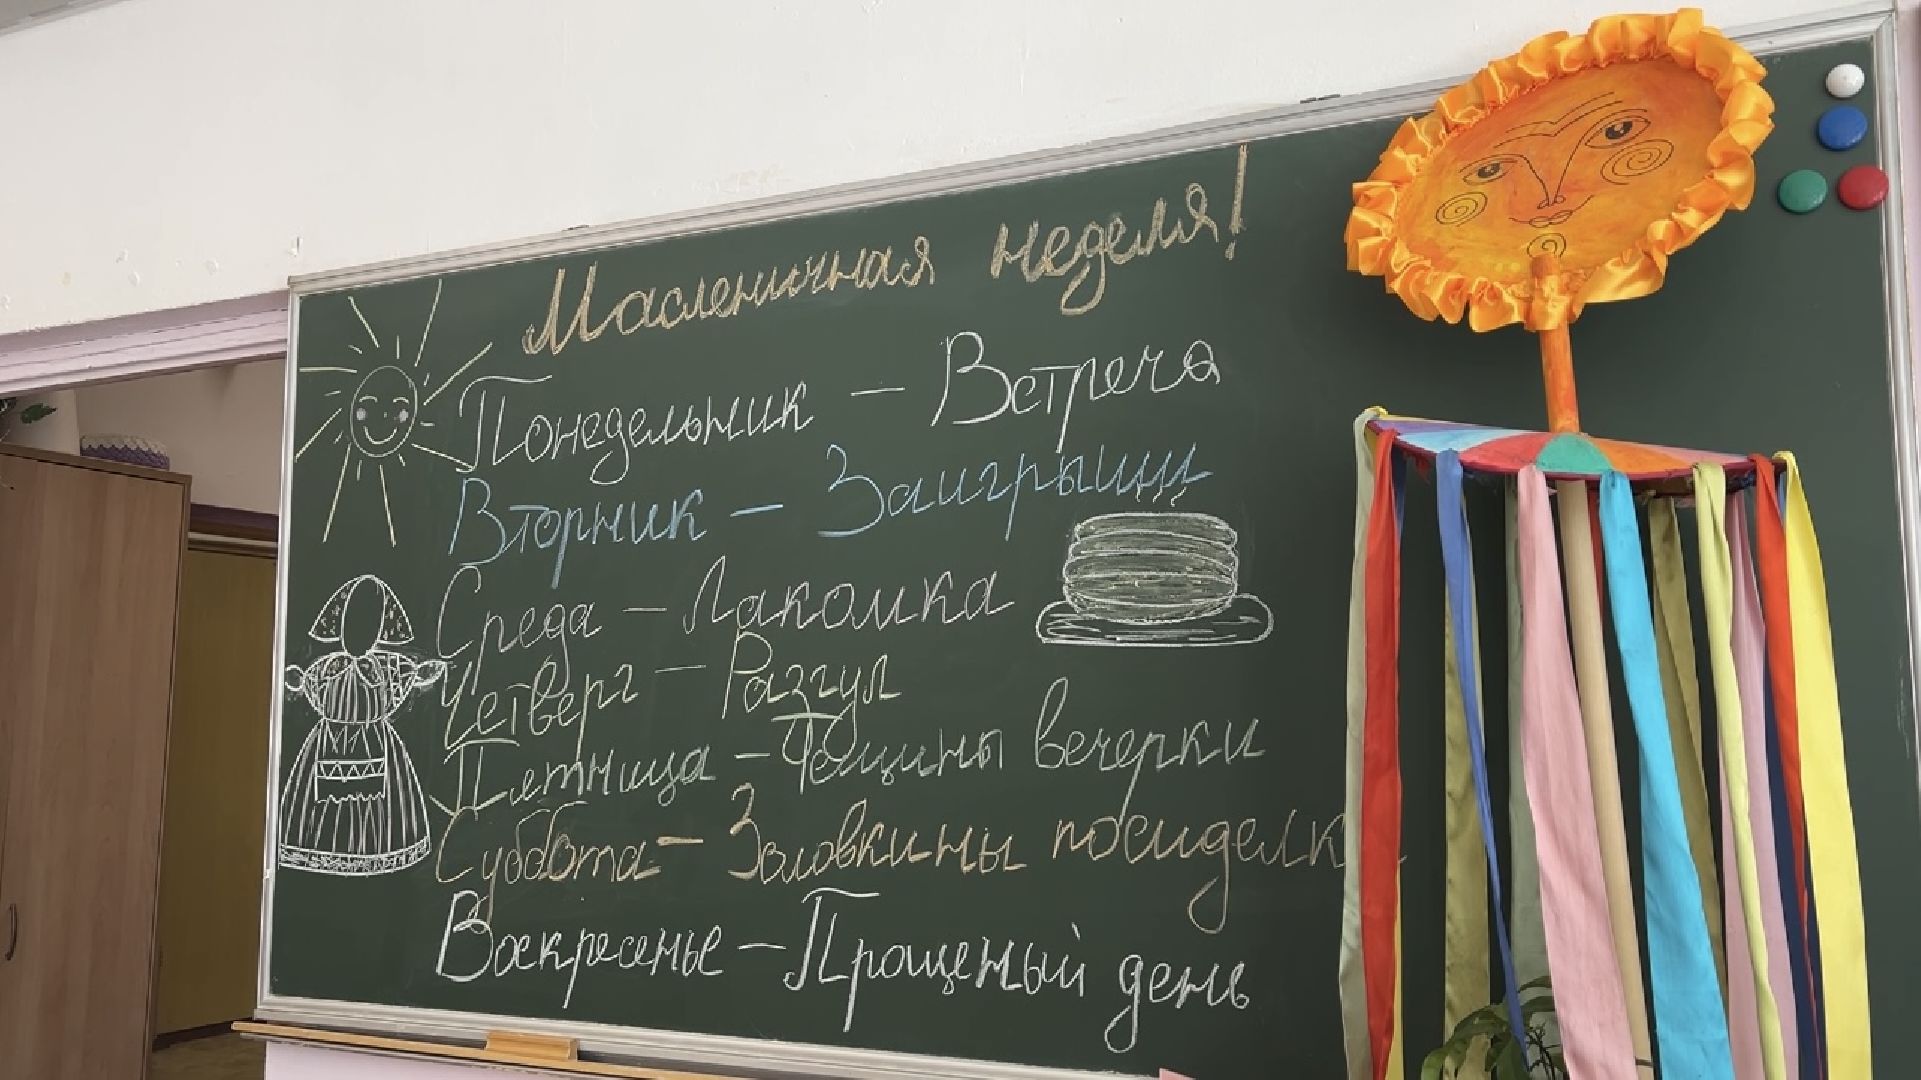 Масленичная неделя!
Понедельник - Встреча
Вторник - Заигрыши
Среда - Лакомка
Четверг - Разгул
Пятница - Тощины вечерки
Суббота - Золовкины посиделк
Воскресенье - Прощеный день